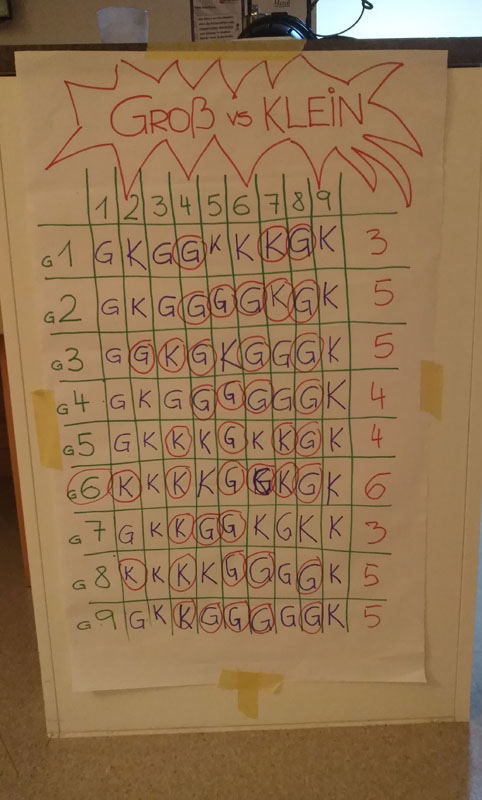 GROß vs KLEiN
1 2 3 4 5 6 7 8 9
G1 G K G G K K K G K 3
G2 G K G G G G K G K 5
G3 G G K G K G G G K 5
G4 G K G G G G G G K 4
G5 G K K K G K K G K 4
G6 K K K K G G K G K 6
G7 G K K G G K G K K 3
G8 K K K K G G G G K 5
G9 G K K G G G G G K 5